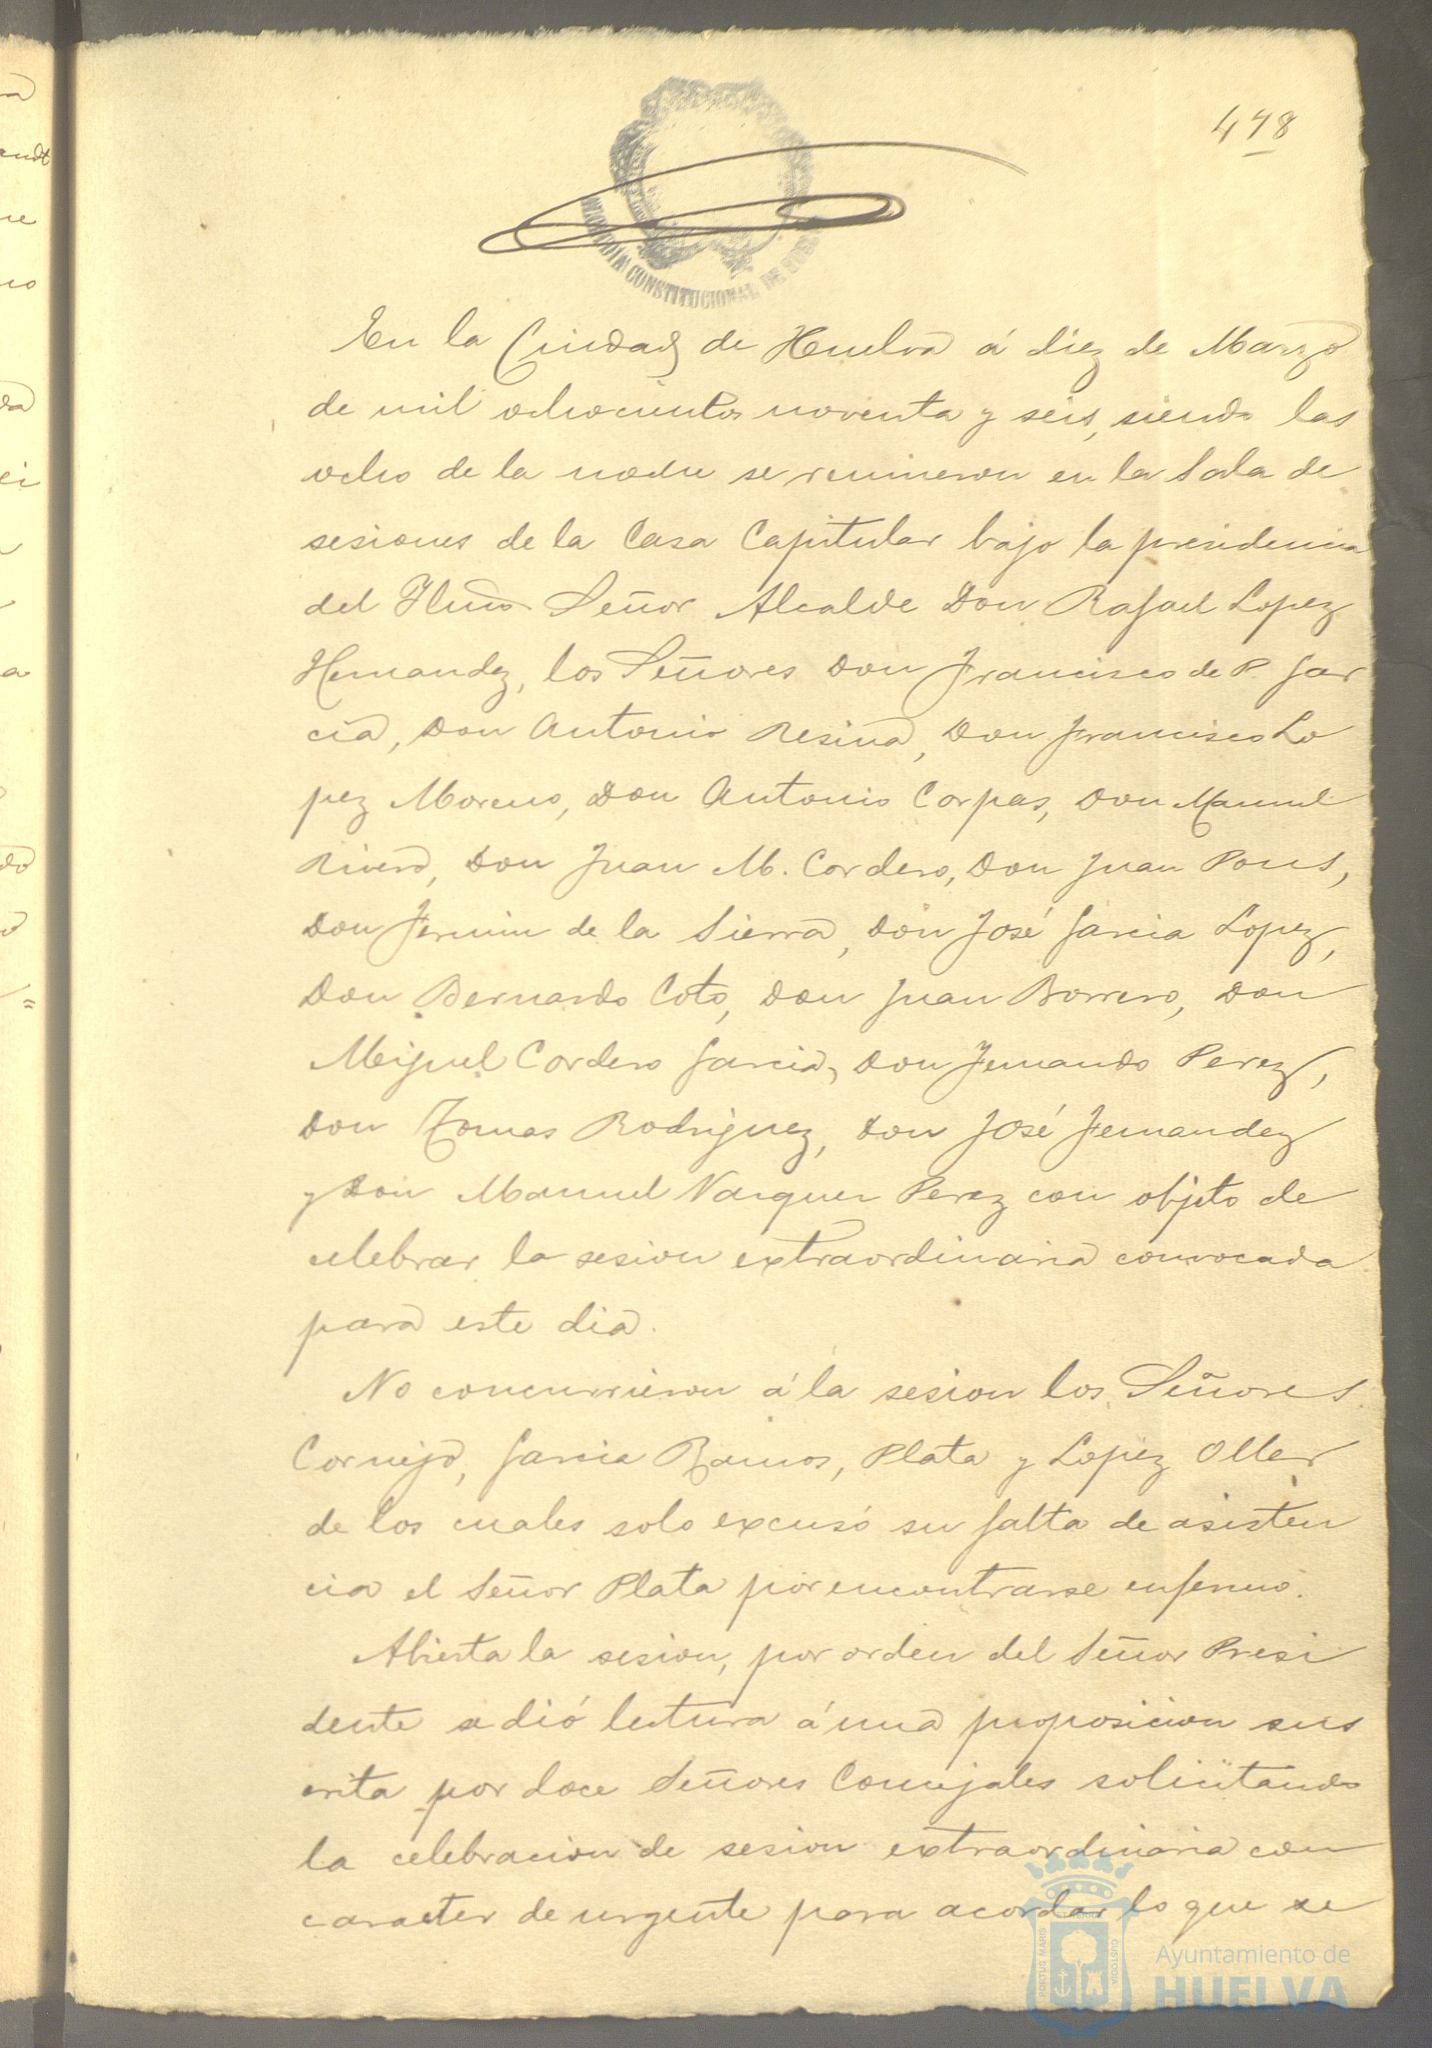 478
ALCALDIA CONSTITUCIONAL DE HUELVA
En la Ciudad de Huelva á diez de Marzo
de mil ochocientos noventa y seis, siendo las
ocho de la noche se reunieron en la Sala de
sesiones de la Casa Capitular bajo la presidencia
del Yltmo Señor Alcalde Don Rafael Lopez
Hernandez, los Señores Don Francisco de P. Gar
cia, Don Antonio Resina, Don Francisco Lo
pez Moreno, Don Antonio Corpas, Don Manuel
Rivero, Don Juan M. Cordero, Don Juan Pons,
Don Fermin de la Sierra, Don José Garcia Lopez,
Don Bernardo Coto, Don Juan Borrero, Don
Miguel Cordero Garcia, Don Fernando Perez,
Don Tomas Rodriguez, Don José Fernandez
y Don Manuel Vazquez Perez con objeto de
celebrar la sesion extraordinaria convocada
para este dia.
No concurrieron á la sesion los Señores
Cornejo, Garcia Ramos, Plata y Lopez Oller
de los cuales solo excusó su falta de asisten
cia el Señor Plata por encontrarse enfermo.
Abierta la sesion, por orden del Señor Presi
dente se dió lectura á una proposicion sus
crita por doce Señores Concejales solicitando
la celebracion de sesion extraordinaria con
caracter de urgente para acordar lo que se
PORTUS MARIS
CUSTODIA
Ayuntamiento de
HUELVA